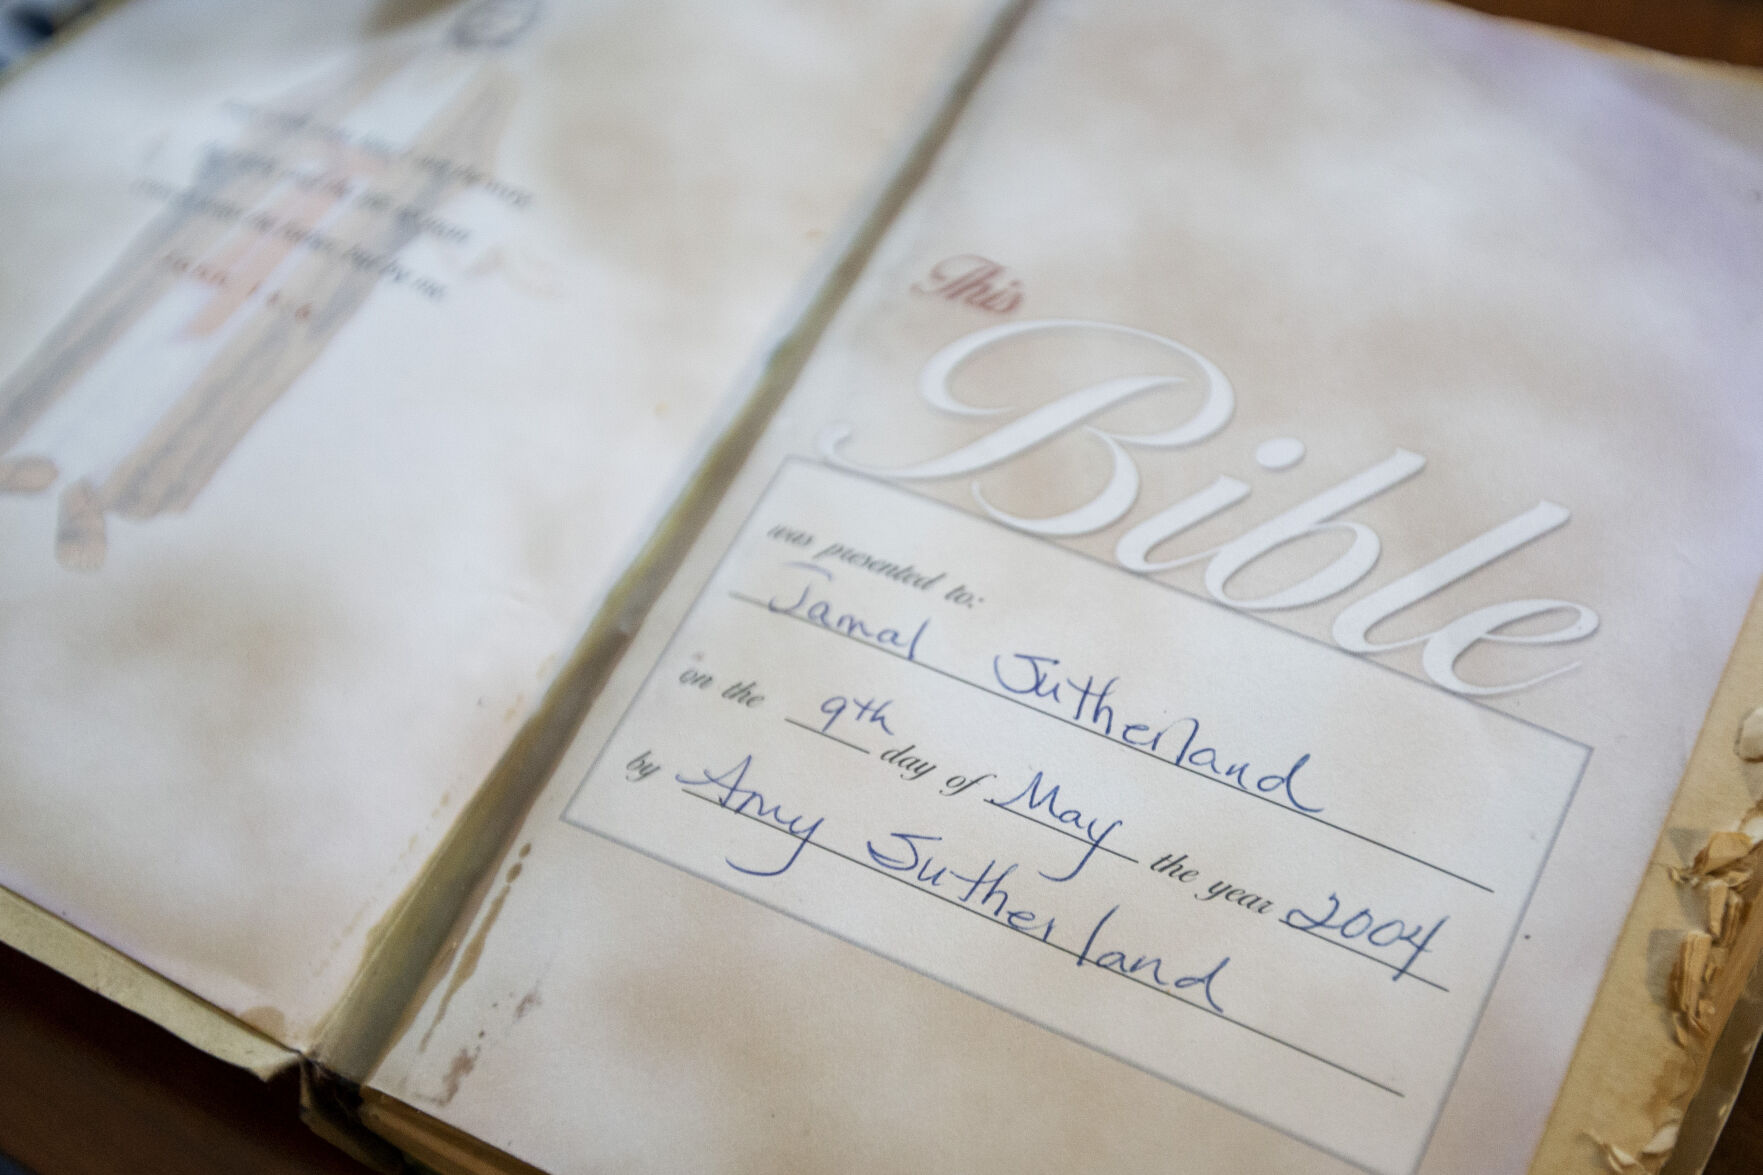 but by me.
This
Bible
was presented to:
Jamal Sutherland
on the 9th day of May the year 2004
by Amy Sutherland